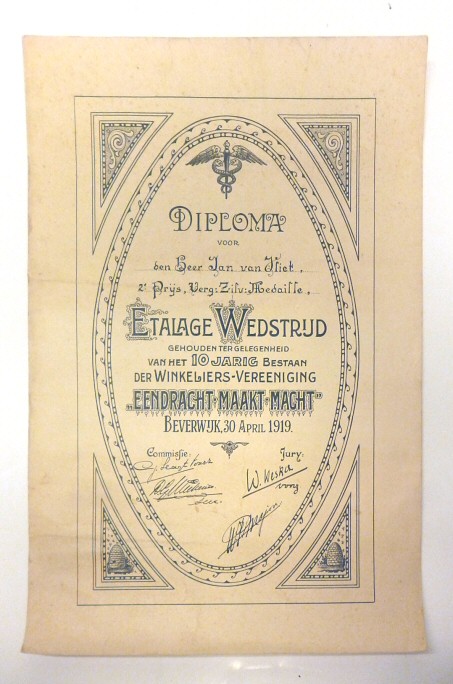 DIPLOMA
VOOR
den Heer Jan van Vliet,
2e Prijs, Verg: Zilv: Medaille,
ETALAGE WEDSTRIJD
GEHOUDEN TER GELEGENHEID
VAN HET 10 JARIG BESTAAN
DER WINKELIERS-VEREENIGING
„EENDRACHT MAAKT MACHT"
BEVERWIJK, 30 APRIL 1919.
Commissie: Jury:
W.